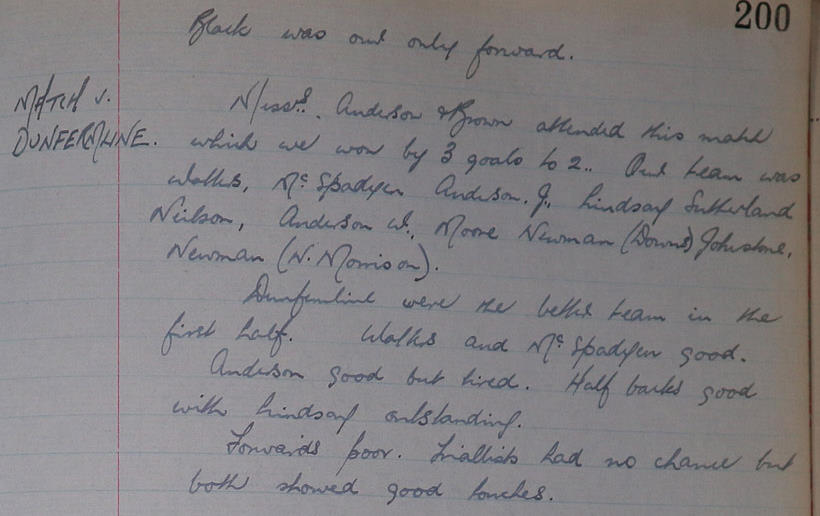 200
Black was our only forward.
MATCH v.
DUNFERMLINE.
Messrs. Anderson & Brown attended this match
which we won by 3 goals to 2.. Our team was
Walker, Mc Spadyen Anderson. J., Lindsay Sutherland
Neilson, Anderson W., Moore Newman (Downs) Johnstone,
Newman (N. Morrison).
Dunfermline were the better team in the
first half. Walker and Mc Spadyen good.
Anderson good but tired. Half backs good
with Lindsay outstanding.
Forwards poor. Triallists had no chance but
both showed good touches.